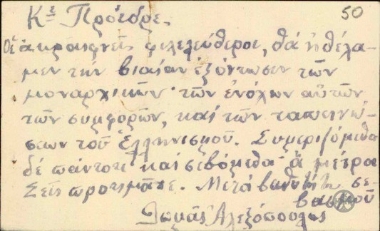 50
Κὲ Πρόεδρε,
Οἱ ἀκραιφνεῖς φιλελεύθεροι, θὰ ἠθέλα-
μεν τὴν βιαίαν ἐξόντωσιν τῶν
μοναρχικῶν τῶν ἐνόχων αὐτῶν
τῶν συμφορῶν, καὶ τῶν ταπεινώ-
σεων τοῦ Ἑλληνισμοῦ. Συμεριζόμεθα
δὲ πάντοτε καὶ σεβόμεθα ἃ μέτρα
Σεῖς προτιμᾶτε. Μετὰ βαθυτάτου σε-
βασμοῦ
Θωμᾶς Ἀλεξόπουλος